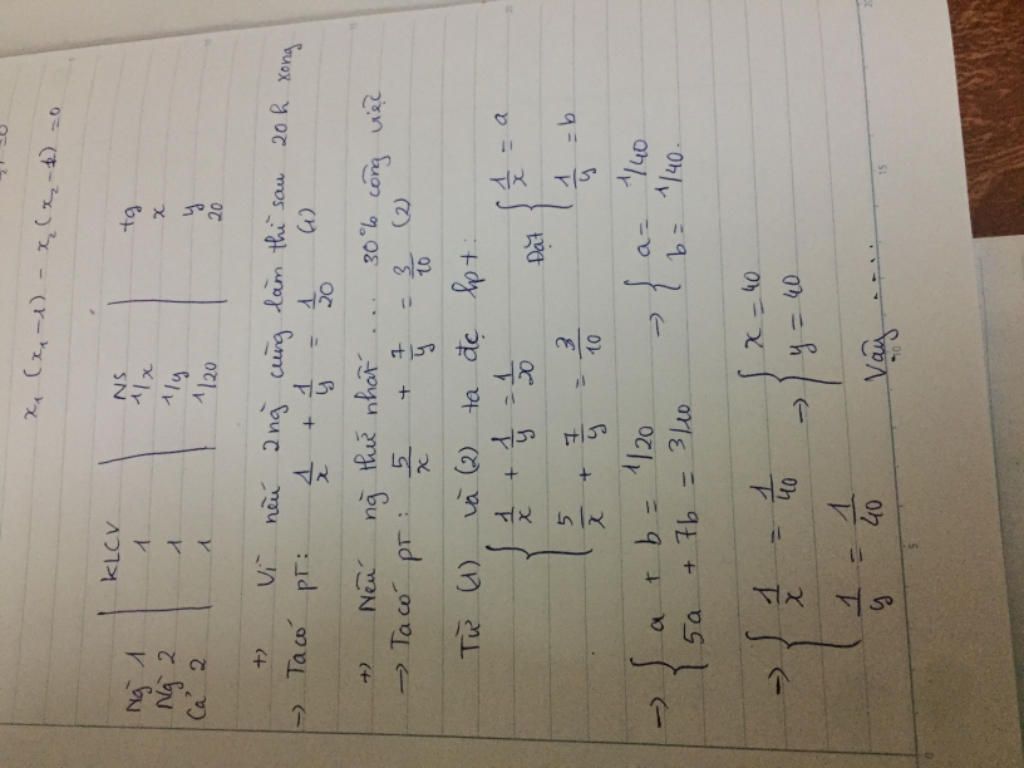 x₁(x₁-1) - x₂(x₂-1)=0
KLCV | NS | tg
Ng 1 | 1 | 1/x | x
Ng 2 | 1 | 1/y | y
Cả 2 | 1 | 1/20 | 20
+> Vì nếu 2 ng cùng làm thì sau 20h xong
-> Ta có pt: 1/x + 1/y = 1/20 (1)
+> Nếu ng thứ nhất... 30% công việc
-> Ta có pt: 5/x + 7/y = 3/10 (2)
Từ (1) và (2) ta đc hpt:
{ 1/x + 1/y = 1/20 Đặt { 1/x = a
5/x + 7/y = 3/10 1/y = b
-> { a + b = 1/20 -> { a = 1/40
5a + 7b = 3/10 b = 1/40.
-> { 1/x = 1/40 -> { x = 40
1/y = 1/40 y = 40
Vậy ....
5
10
15
20